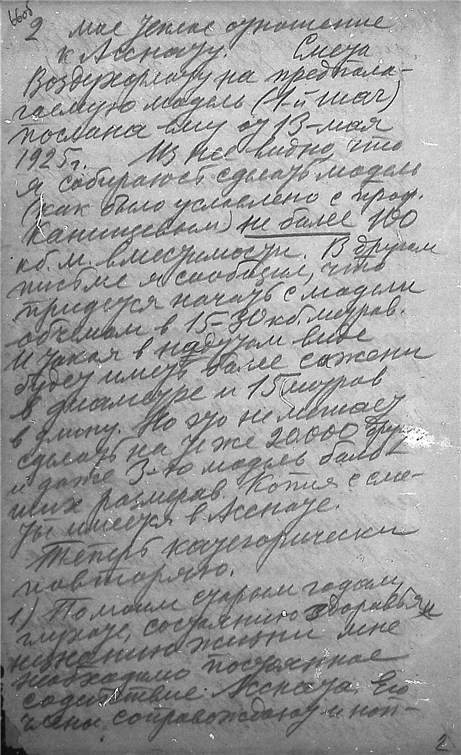 2 мое теплое отношение
к Асснату. Смета
Воздухофлоту на предпола-
гаемую модель (1-й шаг)
послана ему от 13-мая
1925 г. Из нее видно, что
я собираюсь сделать модель
(как было условлено с проф.
Канищевым) не более 100
кб. м. вместимости. В другом
письме я сообщил, что
придется начать с модели
объемом в 15-30 кб. метров.
И такая в надутом виде
будет иметь более сажени
в диаметре и 15 метров
в длину. Но это не мешает
сделать на те же 20.000
и даже 3-ю модель боль-
ших размеров. Копия с сме-
ты имеется в Асснате.
Теперь категорически
повторяю.
1) По моим старым годам,
глухоте, состоянию здоровья и
незнанию жизни мне
необходимо постоянное
содействие Ассната. Его
члены сопровождают и
2